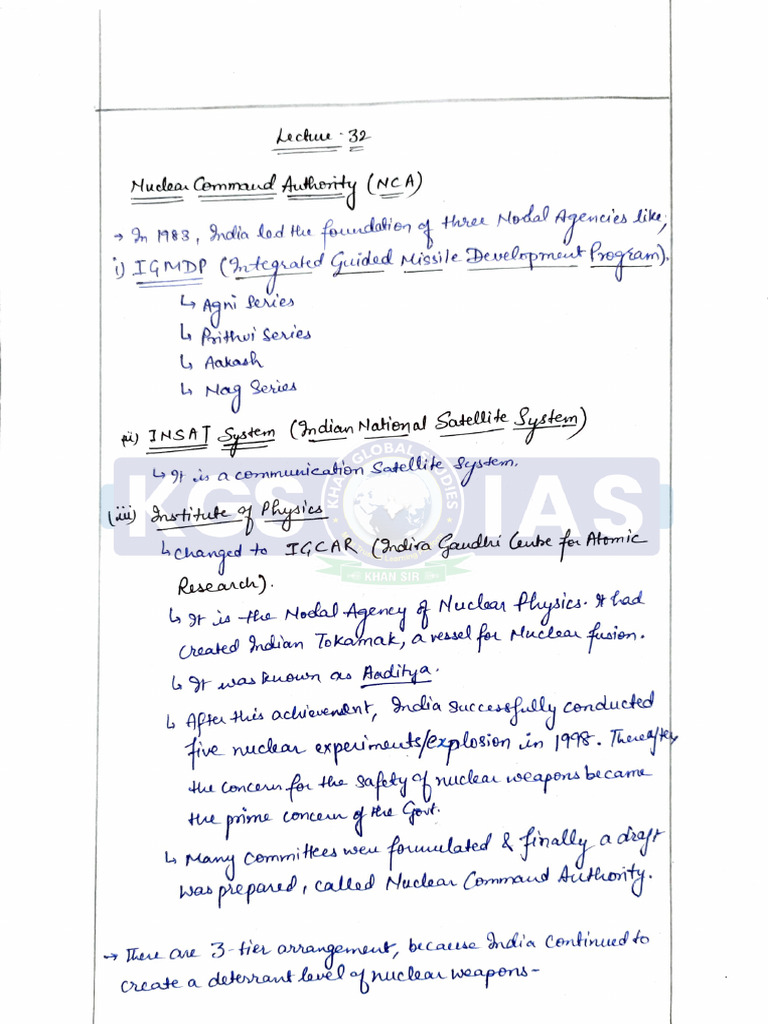 Lecture - 32
Nuclear Command Authority (NCA)
→ In 1983, India led the foundation of three Nodal Agencies like,
i) IGMDP (Integrated Guided Missile Development Program).
↳ Agni Series
↳ Prithvi Series
↳ Aakash
↳ Nag Series
(ii) INSAT System (Indian National Satellite System)
↳ It is a communication Satellite System.
KGS IAS
KHAN GLOBAL STUDIES
KHAN SIR
(iii) Institute of Physics
↳ changed to IGCAR (Indira Gandhi Centre for Atomic
Research).
↳ It is the Nodal Agency of Nuclear Physics. It had
created Indian Tokamak, a vessel for Nuclear fusion.
↳ It was known as Aaditya.
↳ After this achievement, India successfully conducted
five nuclear experiments/explosion in 1998. Thereafter
the concern for the safety of nuclear weapons became
the prime concern of the Govt.
↳ Many Committees were formulated & finally a draft
was prepared, called Nuclear Command Authority.
→ There are 3-tier arrangement, because India continued to
create a deterrant level of nuclear weapons-